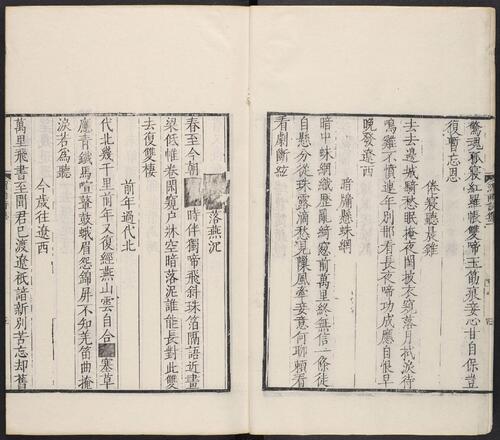 驚魂孤寢紅羅帳雙啼玉筯痕妾心甘自保豈
復暫忘恩
倦寢聽晨雞
去去邊城騎愁眠掩夜閨披衣窺落月拭淚待
鳴雞不憤連年別那看長夜啼功成應自恨早
晚發遼西
暗牖懸蛛網
暗中蛛網織歷亂綺窻前萬里終無信一條徒
自懸分從珠露滴愁見隙風牽妾意何聊賴看
看劇斷絃
落燕泥
春至今朝時伴獨啼飛斜珠箔隔語近畫
梁低帷卷閑窺戶牀空暗落泥誰能長對此雙
去復雙棲
前年過代北
代北幾千里前年又復經燕山雲自合塞草
應青鐵馬喧鼙鼓蛾眉怨錦屏不知羌笛曲掩
淚若為聽
今歲往遼西
萬里飛書至聞君已渡遼秪諳新別苦忘却舊